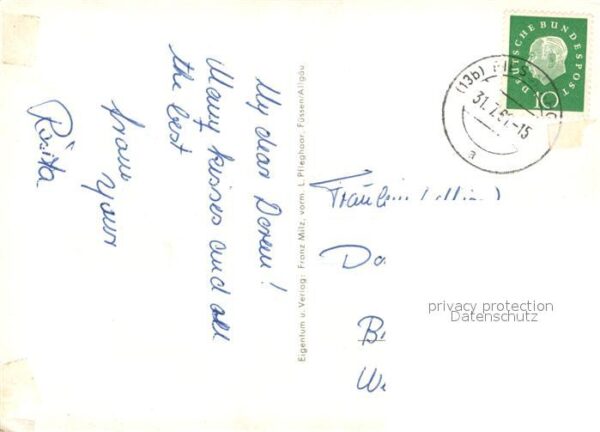 My dear Doren!
Many kisses and all
the best
from
Your
Rosita
Eigentum u. Verlag: Franz Milz, vorm. L. Pfleghaar, Füssen/Allgäu
DEUTSCHE BUNDESPOST
10
(13b)
31.7.
-15
a
Fräulein
Da
B
We
privacy protection
Datenschutz